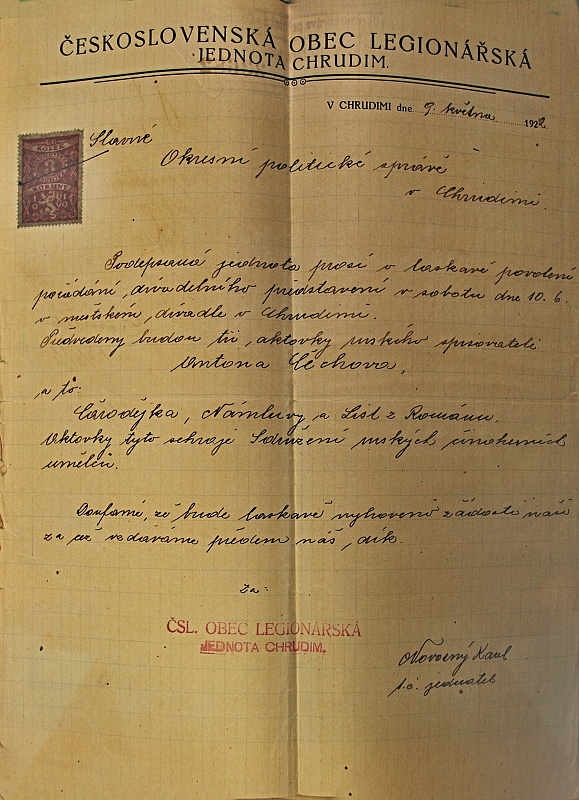 ČESKOSLOVENSKÁ OBEC LEGIONÁŘSKÁ
JEDNOTA CHRUDIM.
V CHRUDIMI dne 9. května 1922
KOLEK
KORUNY
Slavné
Okresní politické správě
v Chrudimi.
Podepsaná jednota prosí o laskavé povolení
pořádání divadelního představení v sobotu dne 10. 6.
v městském divadle v Chrudimi.
Předvedeny budou tři aktovky ruského spisovatele
Antona Čechova,
a to:
Čarodějka, Námluvy a List z Románu.
Aktovky tyto sehraje Sdružení ruských činoherních
umělců.
Doufáme, že bude laskavě vyhověno žádosti naší
za což vzdáváme předem náš dík.
Za:
ČSL. OBEC LEGIONÁRSKÁ
JEDNOTA CHRUDIM.
Novotný Karel
t.č. jednatel